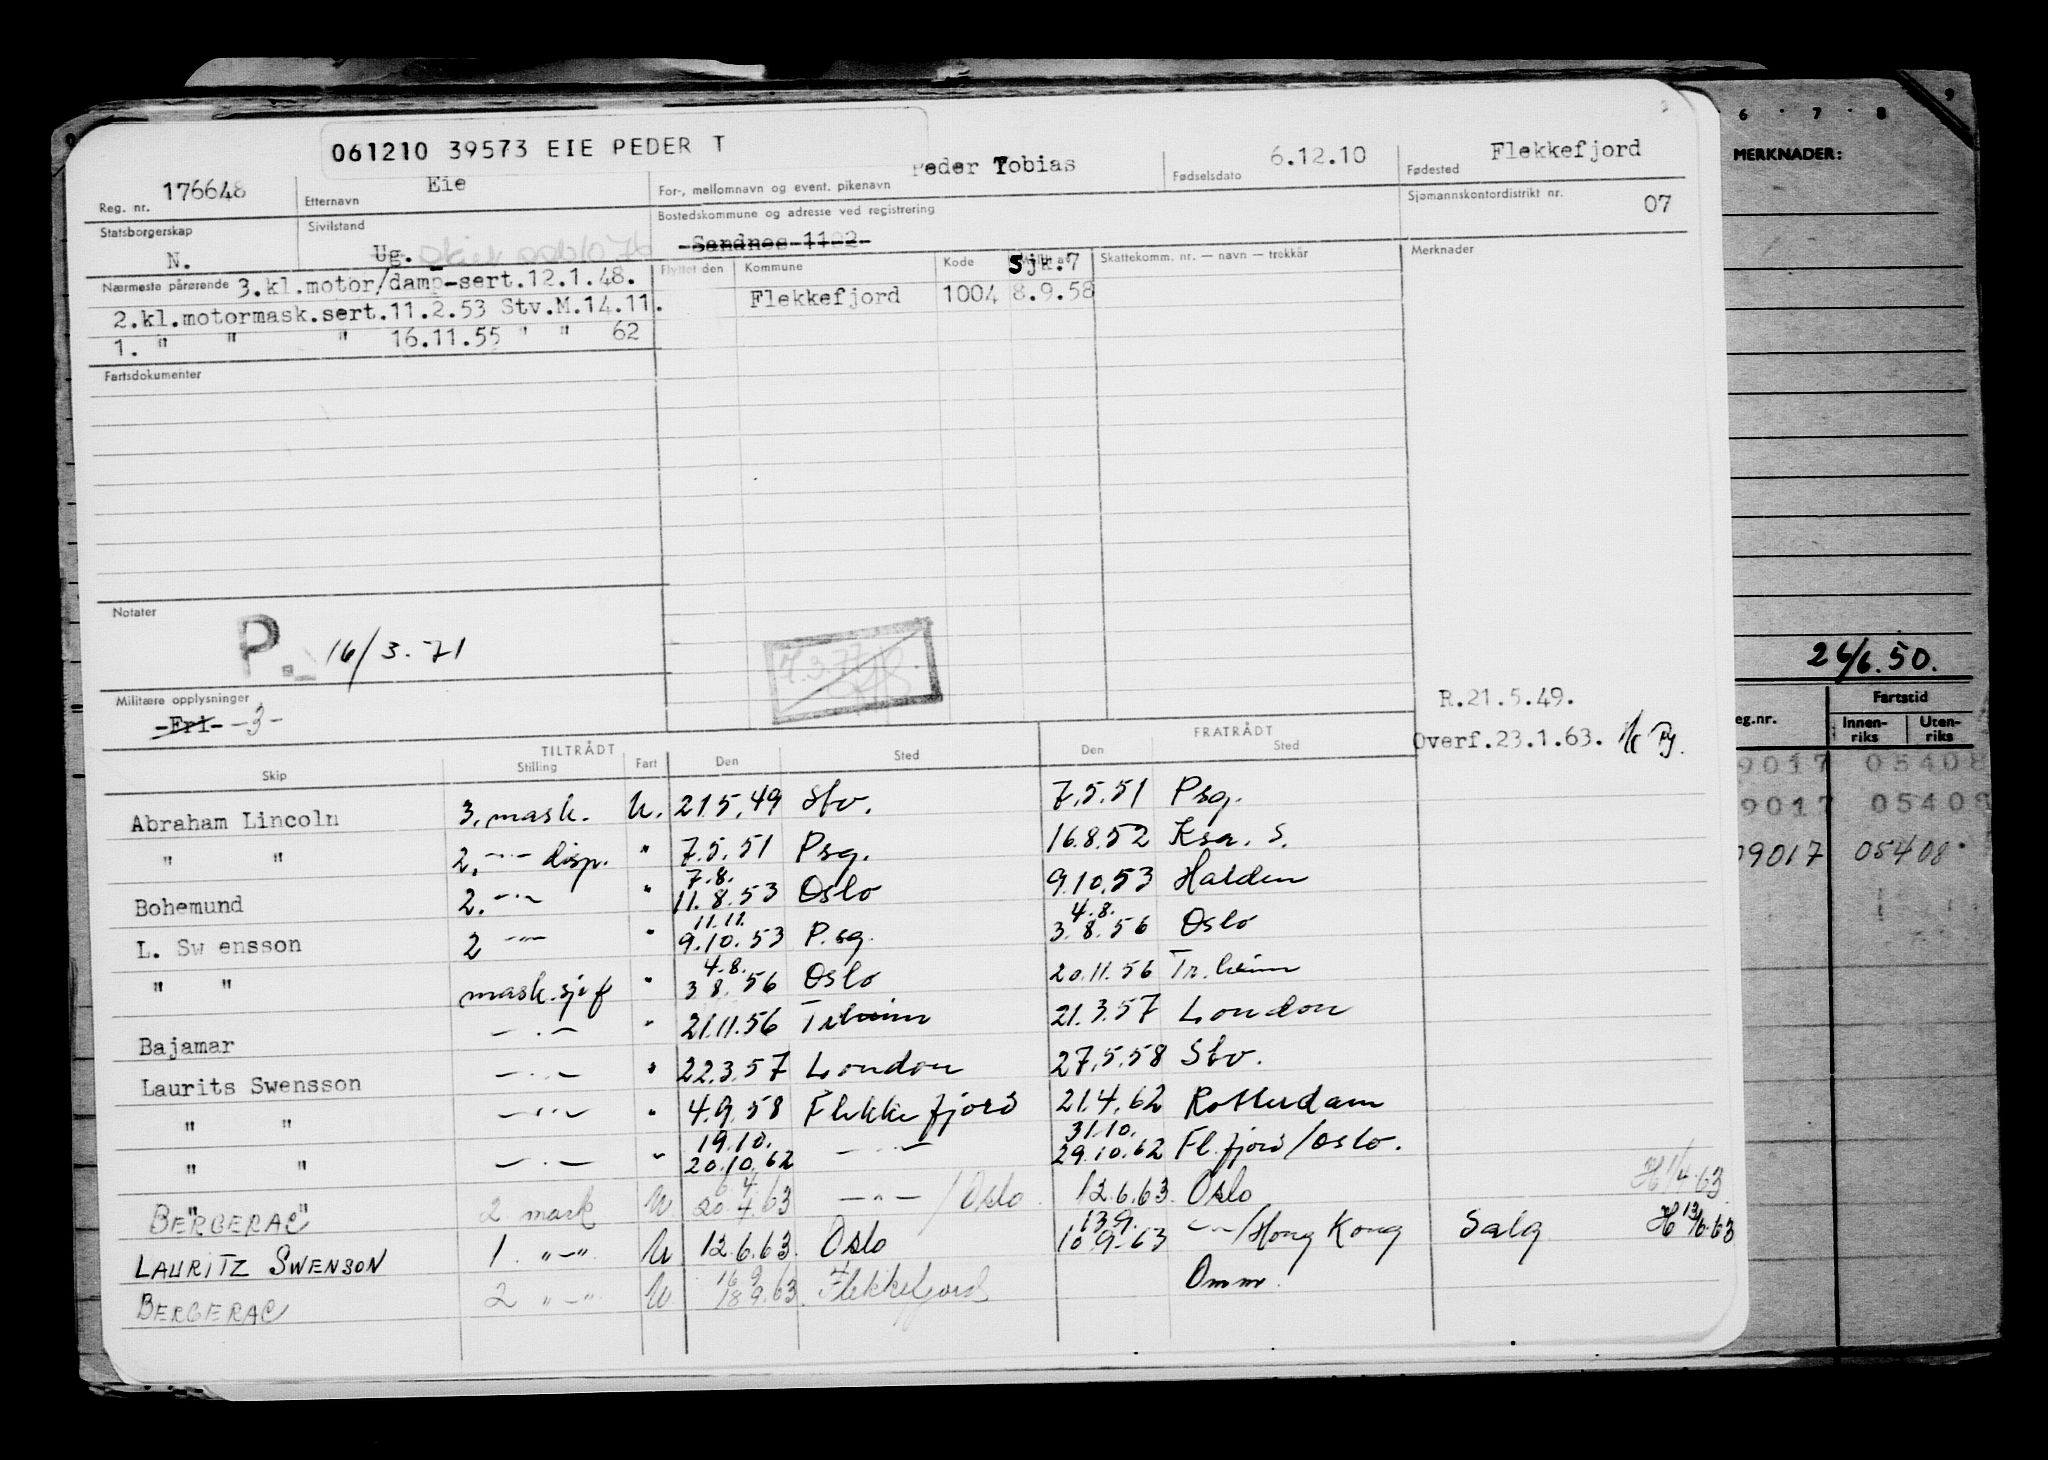 061210 39573 EIE PEDER T
Reg. nr. 176648 Etternavn Eie For-, mellomnavn og event. pikenavn Peder Tobias Fødselsdato 6.12.10 Fødested Flekkefjord
Statsborgerskap N. Sivilstand Ug. Bostedskommune og adresse ved registrering Sandnes 1102 Sjømannskontordistrikt nr. 07
Nærmeste pårørende 3.kl.motor/damp-sert.12.1.48.
2.kl.motormask.sert.11.2.53 Stv.M.14.11.
1. " " " 16.11.55 " " 62
Flyttet den Kommune Kode Sjk.7 Skattekomm. nr. — navn — trekkår Merknader
Flekkefjord 1004 8.9.58
Fartsdokumenter
Notater
P. 16/3.71
Militære opplysninger
-Fri- -3-
R.21.5.49.
Overf.23.1.63.
TILTRÅDT FRATRÅDT
Skip Stilling Fart Den Sted Den Sted
Abraham Lincoln 3. mask. U. 21.5.49 Stv. 7.5.51 Psg.
" " 2. -"- disp. " 7.5.51 Psg. 16.8.52 Ksa. S.
7.8.
Bohemund 2. -"- " 11.8.53 Oslo 9.10.53 Halden
11.11. 4.8.
L. Swensson 2 -"- " 9.10.53 P.sg. 3.8.56 Oslo
4.8.
" " mask.sjef " 3 8.56 Oslo 20.11.56 Tr.heim
Bajamar -"- " 21.11.56 Tr.heim 21.3.57 London
Laurits Swensson -"- " 22.3.57 London 27.5.58 Stv.
" " -"- " 4.9.58 Flekkefjord 21.4.62 Rotterdam
19.10. 31.10.
" " -"- " 20.10.62 -"- 29.10.62 Fl.fjord/Oslo.
6.4
" "
BERGERAC 2 mask U 20.4.63 -"-/Oslo. 12.6.63. Oslo H 1/4.63
13.9.
LAURITZ SWENSON 1. "-" U 12.6.63. Oslo 10.9-63 -"-/Hong Kong Salg H 13/6.63
16 9
BERGERAC 2 "-" U. 18 9.63. Flekkefjord Omm.
6 · 7 · 8 9
MERKNADER:
26/6.50.
eg.nr. Fartstid
Innen-riks Uten-riks
9017 05408
9017 05408
09017 05408